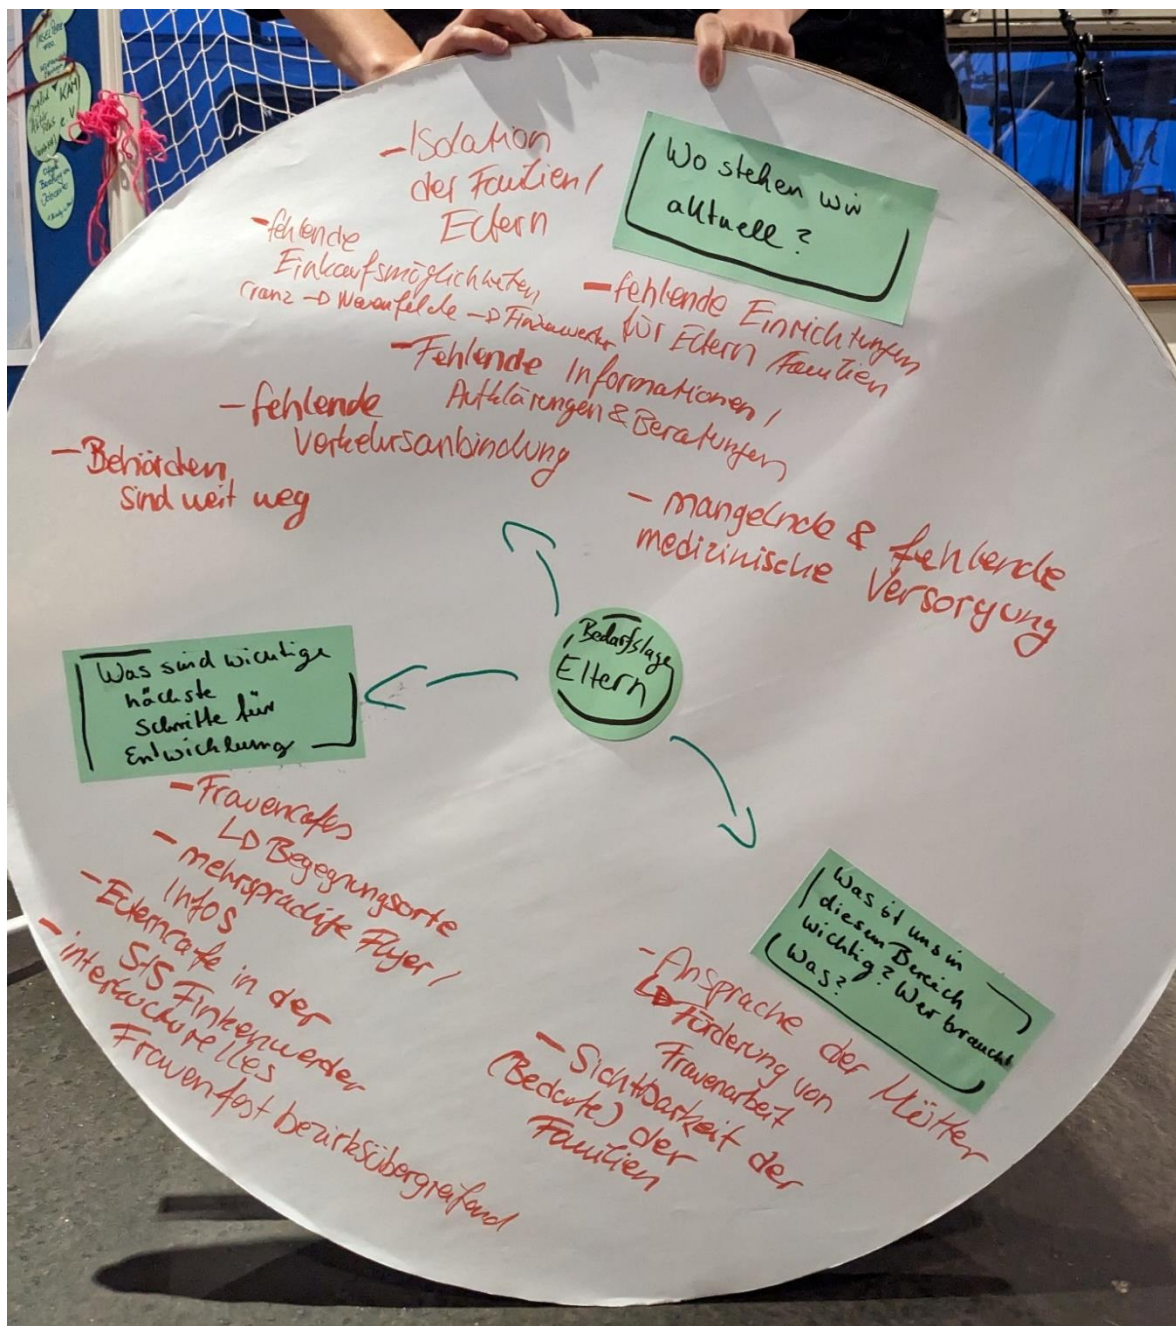 Wo stehen wir
aktuell?
- Isolation
der Familien /
Eltern
- fehlende
Einkaufsmöglichkeiten
Cranz → Neuenfelde → Finkenwerder
- fehlende Einrichtungen
für Eltern / Familien
- Fehlende Informationen /
Aufklärungen & Beratungen
- fehlende
Verkehrsanbindung
- Behörden
sind weit weg
- mangelnde & fehlende
medizinische Versorgung
Bedarfslage
Eltern
Was sind wichtige
nächste
Schritte für
Entwicklung
- Frauencafes
↳ Begegnungsorte
- mehrsprachige Flyer /
Infos
- Elterncafe in der
StS Finkenwerder
- interkulturelles
Frauenfest bezirksübergreifend
Was ist uns in
diesem Bereich
wichtig? Wer braucht
Was?
- Ansprache der Mütter
↳ Förderung von
Frauenarbeit
- Sichtbarkeit der
(Bedarfe) der
Familien
KAM
e.V.